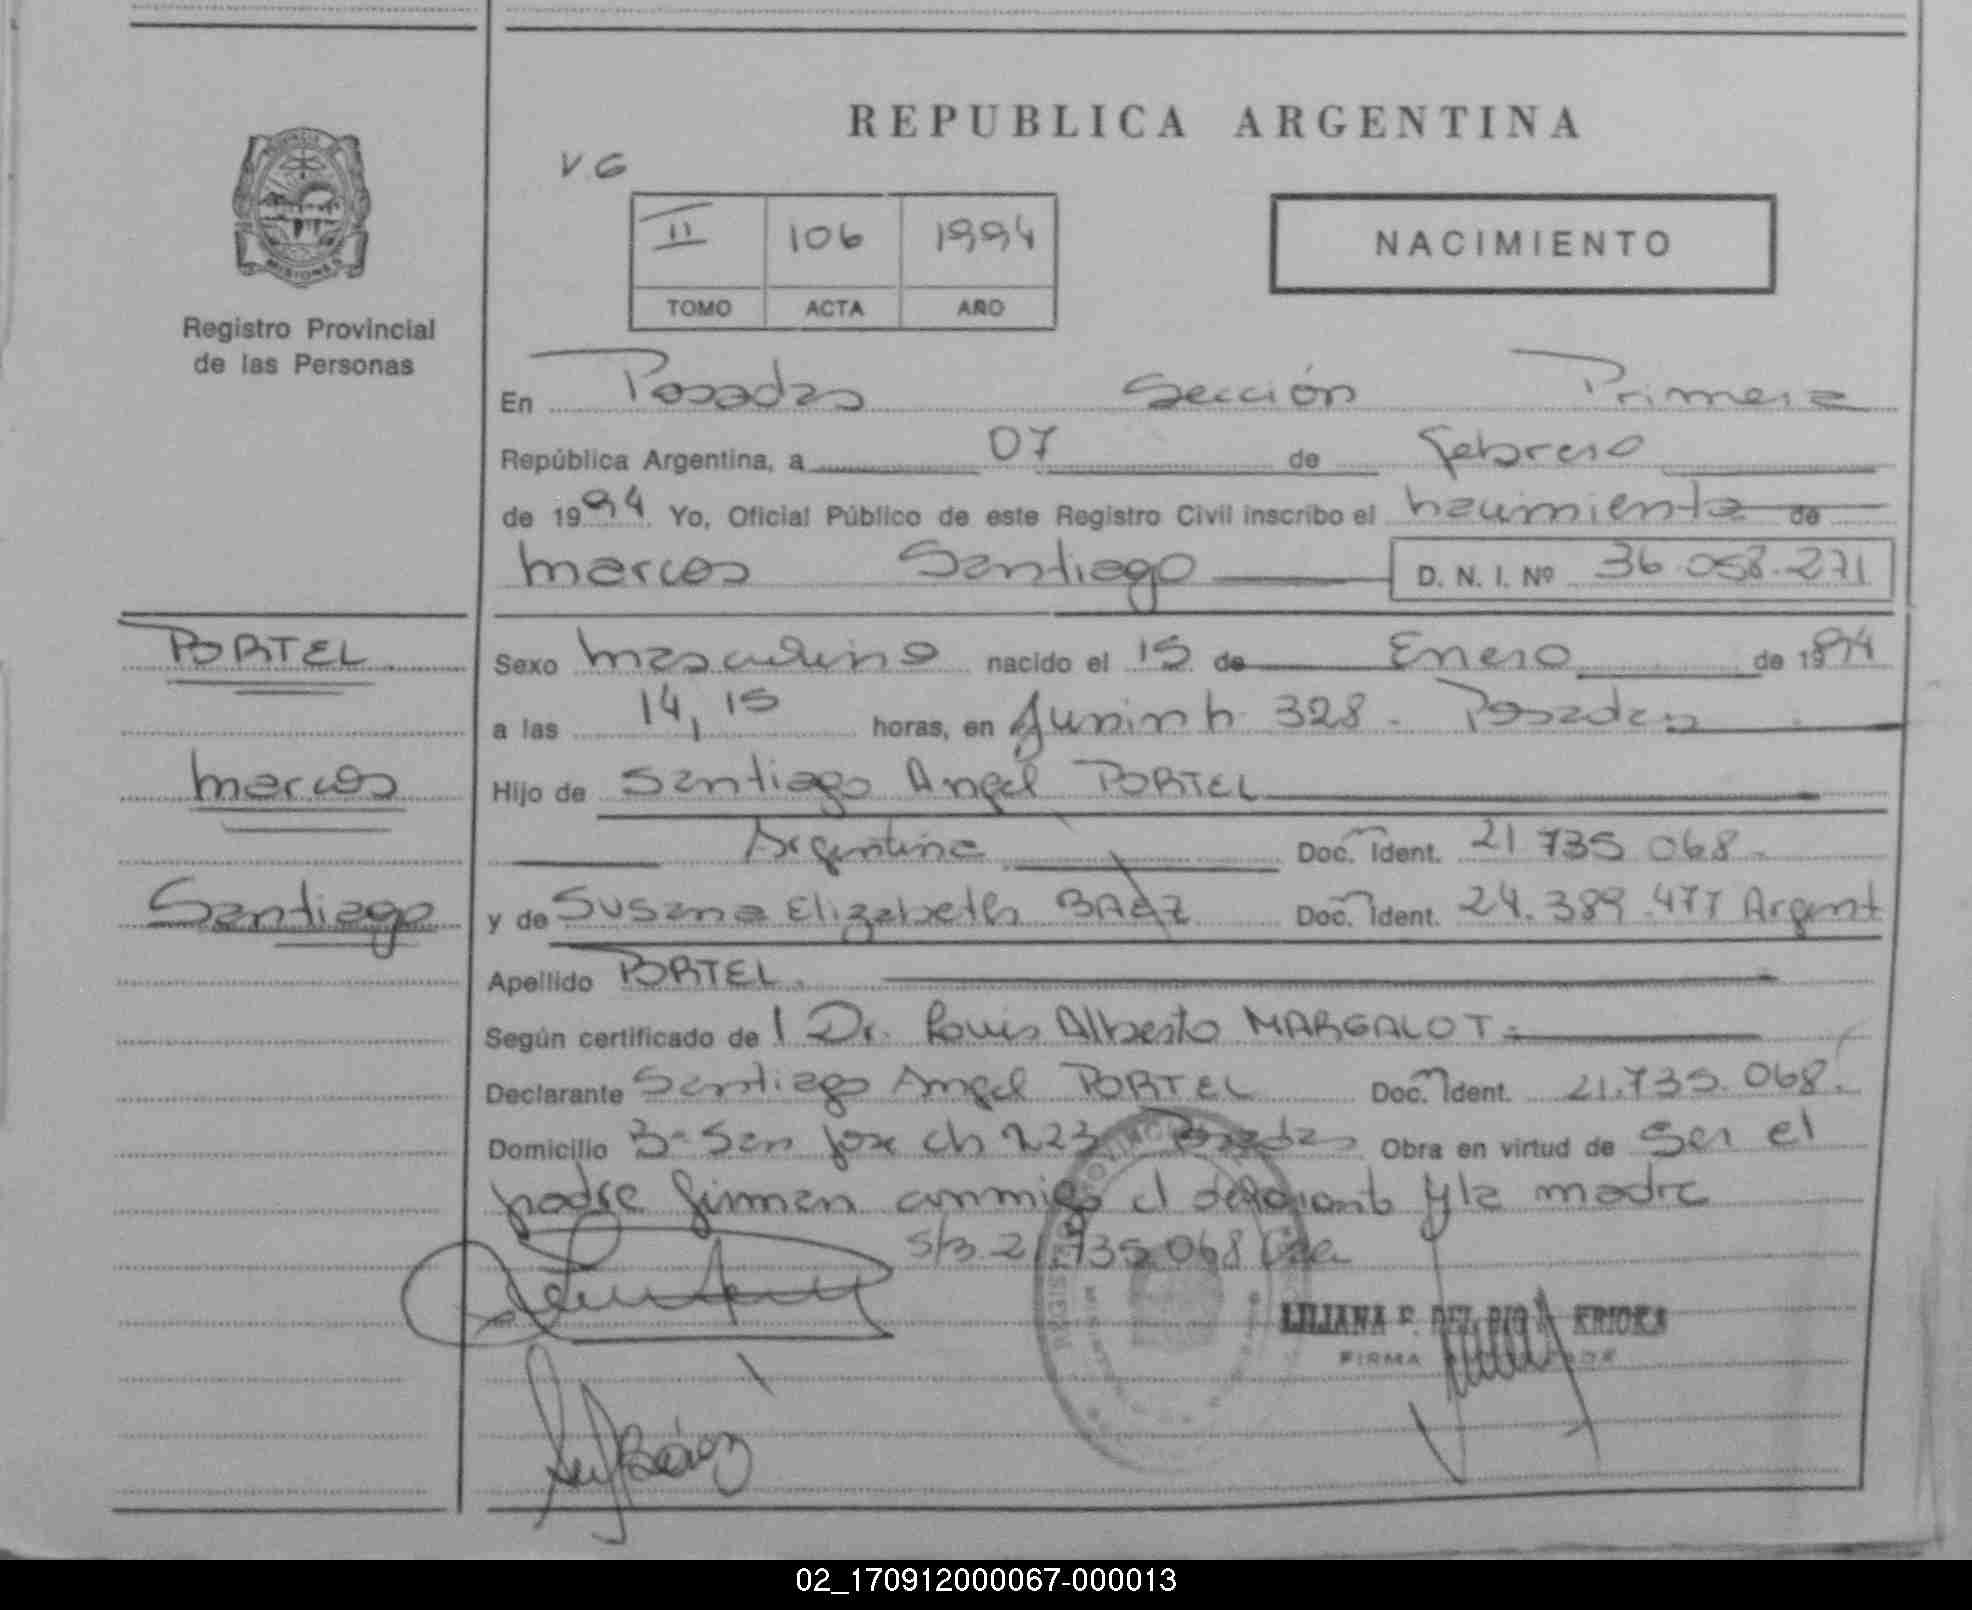 REPUBLICA ARGENTINA
V.G
II 106 1994
TOMO ACTA AÑO
NACIMIENTO
MISIONES
Registro Provincial
de las Personas
En Posadas Sección Primera
República Argentina, a 07 de febrero
de 1994 Yo, Oficial Público de este Registro Civil inscribo el nacimiento de
Marcos Santiago D. N. I. Nº 36.058.271
PORTEL
Marcos
Santiago
Sexo Masculino nacido el 15 de Enero de 1994
a las 14,15 horas, en Junin n 328 - Posadas
Hijo de Santiago Angel PORTEL
Argentina Doc. Ident. 21 735 068
y de Susana Elizabeth BAEZ Doc. Ident. 24.389.477 Argent
Apellido PORTEL
Según certificado de l Dr. Louis Alberto MARGALOT
Declarante Santiago Angel PORTEL Doc. Ident. 21.735.068.
Domicilio Bº San Jose ch 223 Posadas Obra en virtud de ser el
padre firman conmigo el declarante y la madre
s/b 21735.068
LILIANA F. DEL RIO
FIRMA
Báez
02_170912000067-000013